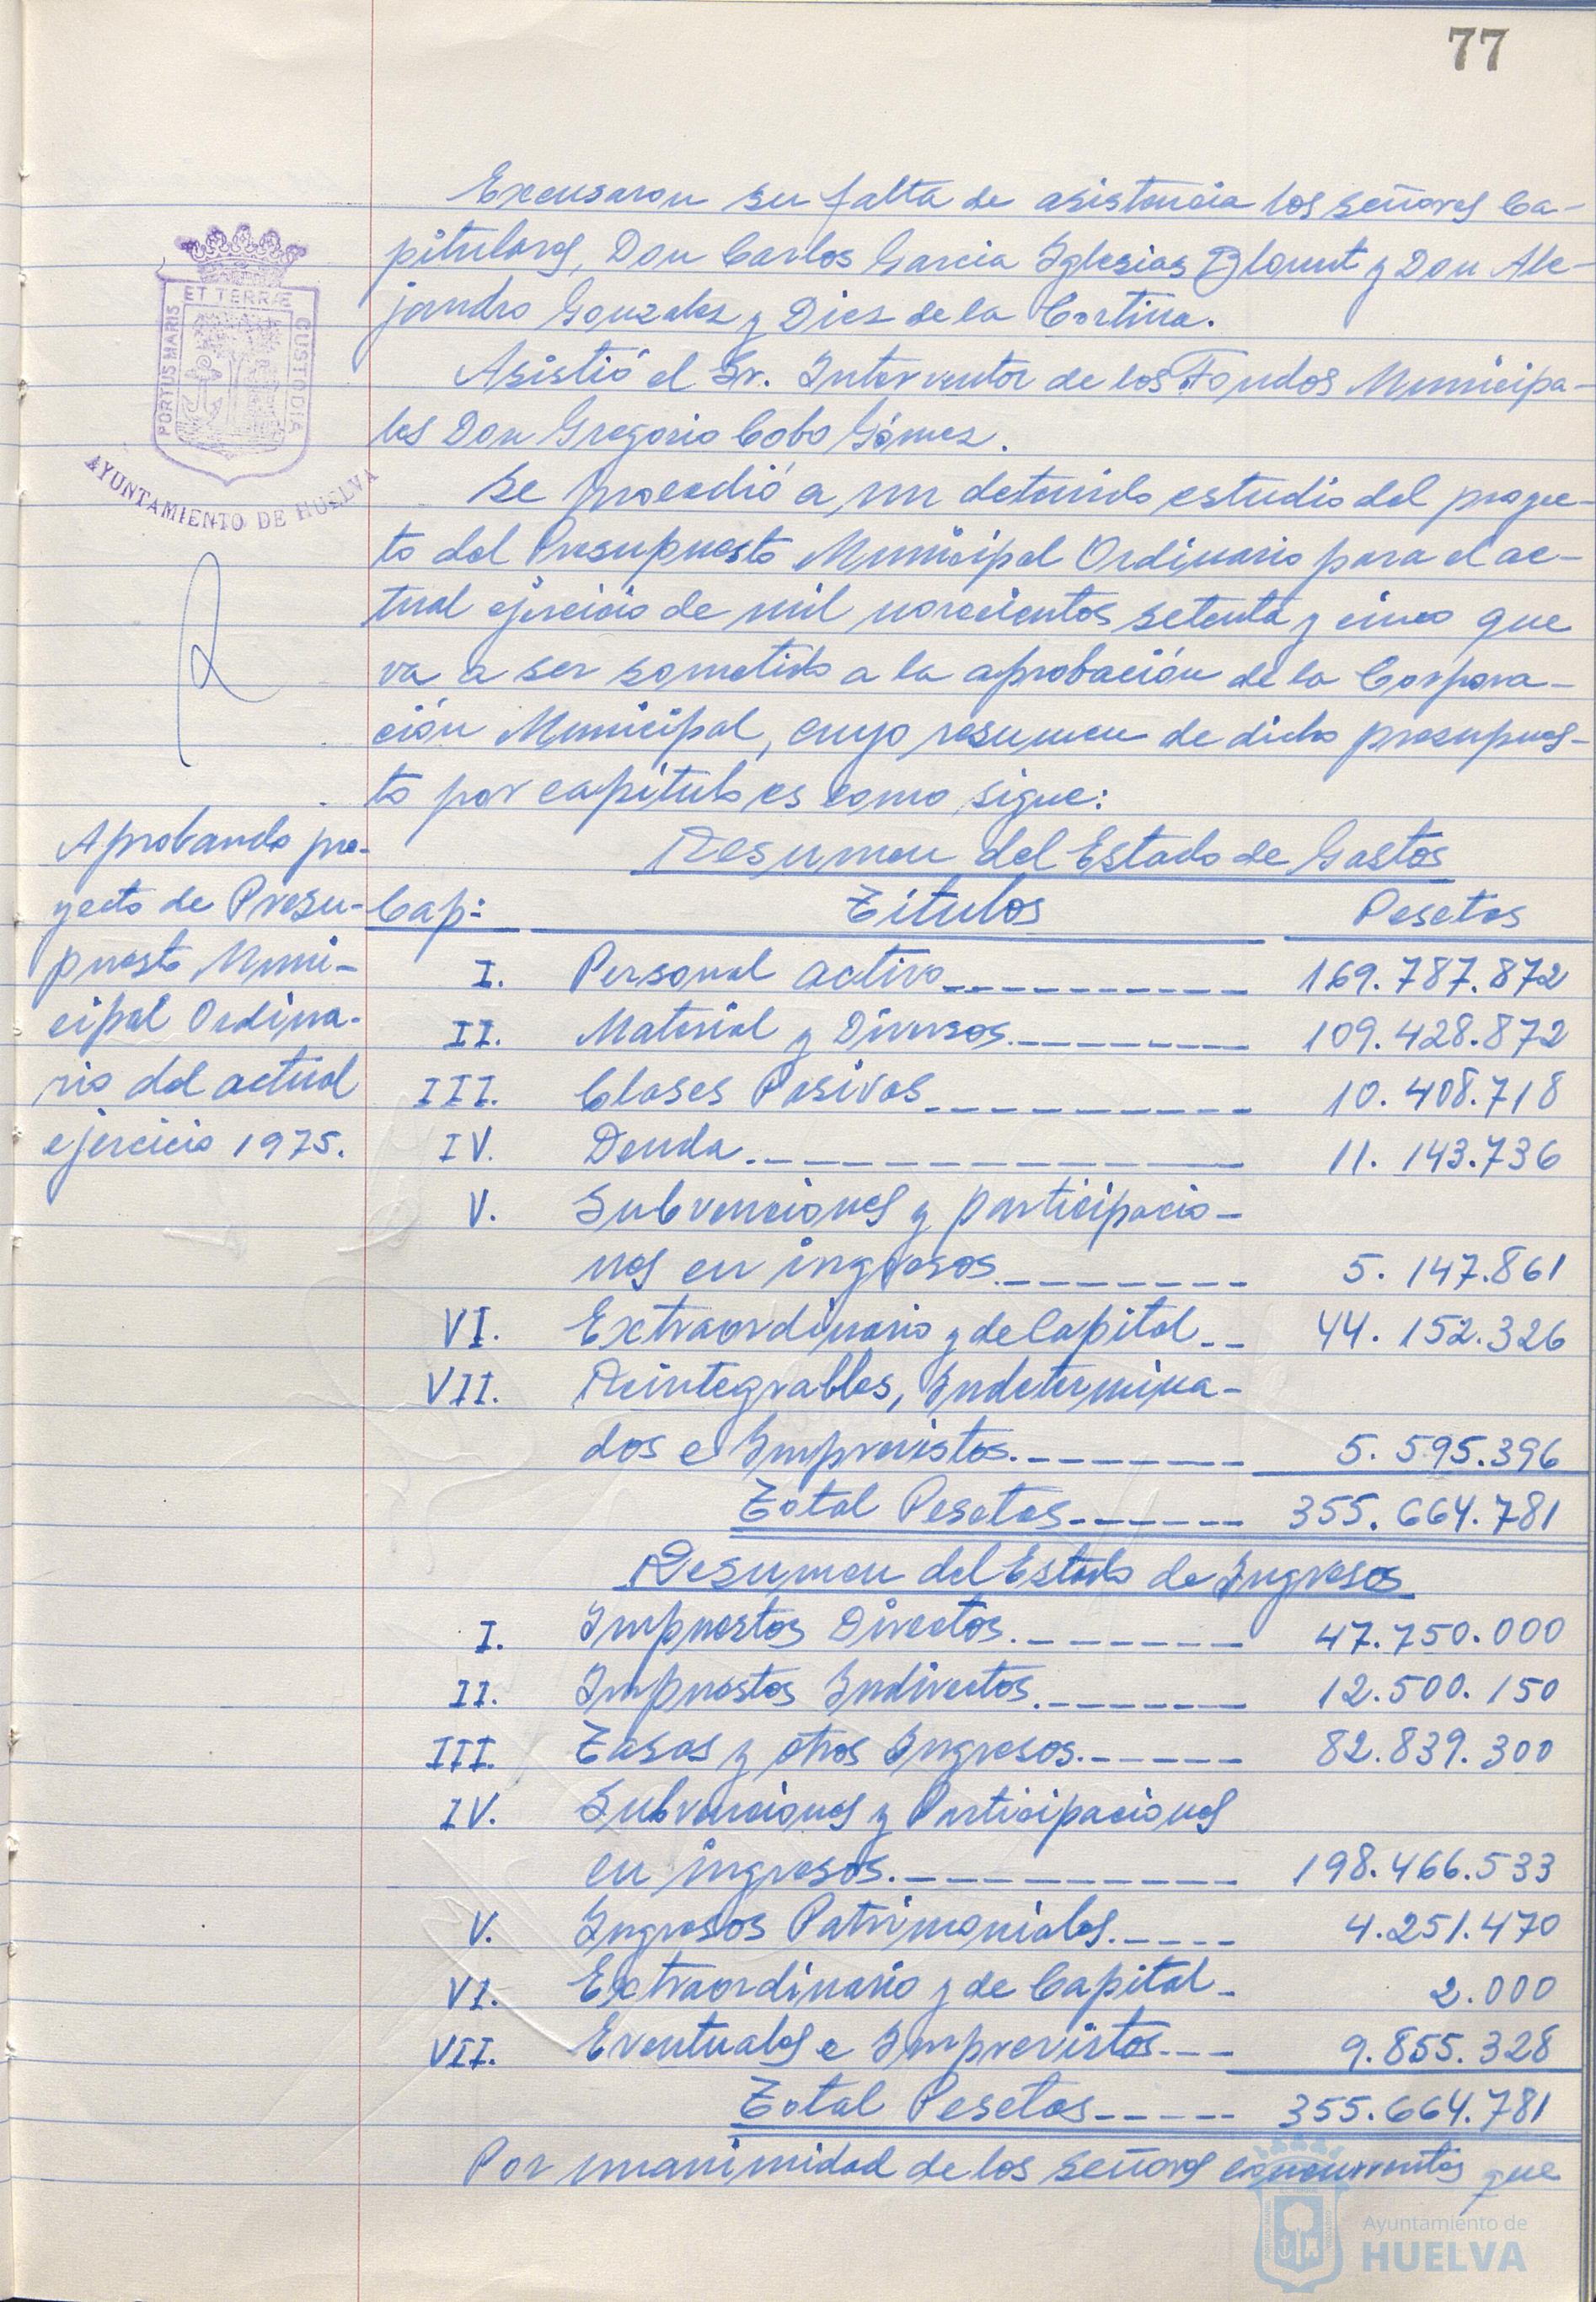 77
Excusaron su falta de asistencia los señores Ca-
pitulares, Don Carlos Garcia Iglesias Blount y Don Ale-
jandro Gonzalez y Diez de la Cortina.
Asistió el Sr. Interventor de los Fondos Municipa-
les Don Gregorio Cobo Gómez.
Se procedió a un detenido estudio del proyec-
to del Presupuesto Municipal Ordinario para el ac-
tual ejercicio de mil novecientos setenta y cinco que
va a ser sometido a la aprobación de la Corpora-
ción Municipal, cuyo resumen de dicho presupues-
to por capitulo es como sigue:
PORTUS MARIS
ET TERRÆ
CUSTODIA
AYUNTAMIENTO DE HUELVA
Aprobando pro-
yecto de Presu-
puesto Muni-
cipal Ordina-
rio del actual
ejercicio 1975.
Resumen del Estado de Gastos
Cap: Títulos Pesetas
I. Personal activo 169.787.872
II. Material y Diversos 109.428.872
III. Clases Pasivas 10.408.718
IV. Deuda 11.143.736
V. Subvenciones y participacio-
nes en ingresos 5.147.861
VI. Extraordinario y de Capital 44.152.326
VII. Reintegrables, Indetermina-
dos e Imprevistos 5.595.396
Total Pesetas 355.664.781
Resumen del Estado de Ingresos
I. Impuestos Directos 47.750.000
II. Impuestos Indirectos 12.500.150
III. Tasas y otros Ingresos 82.839.300
IV. Subvenciones y Participaciones
en ingresos 198.466.533
V. Ingresos Patrimoniales 4.251.470
VI. Extraordinario y de Capital 2.000
VII. Eventuales e Imprevistos 9.855.328
Total Pesetas 355.664.781
Por unanimidad de los señores concurrentes que
Ayuntamiento de
HUELVA